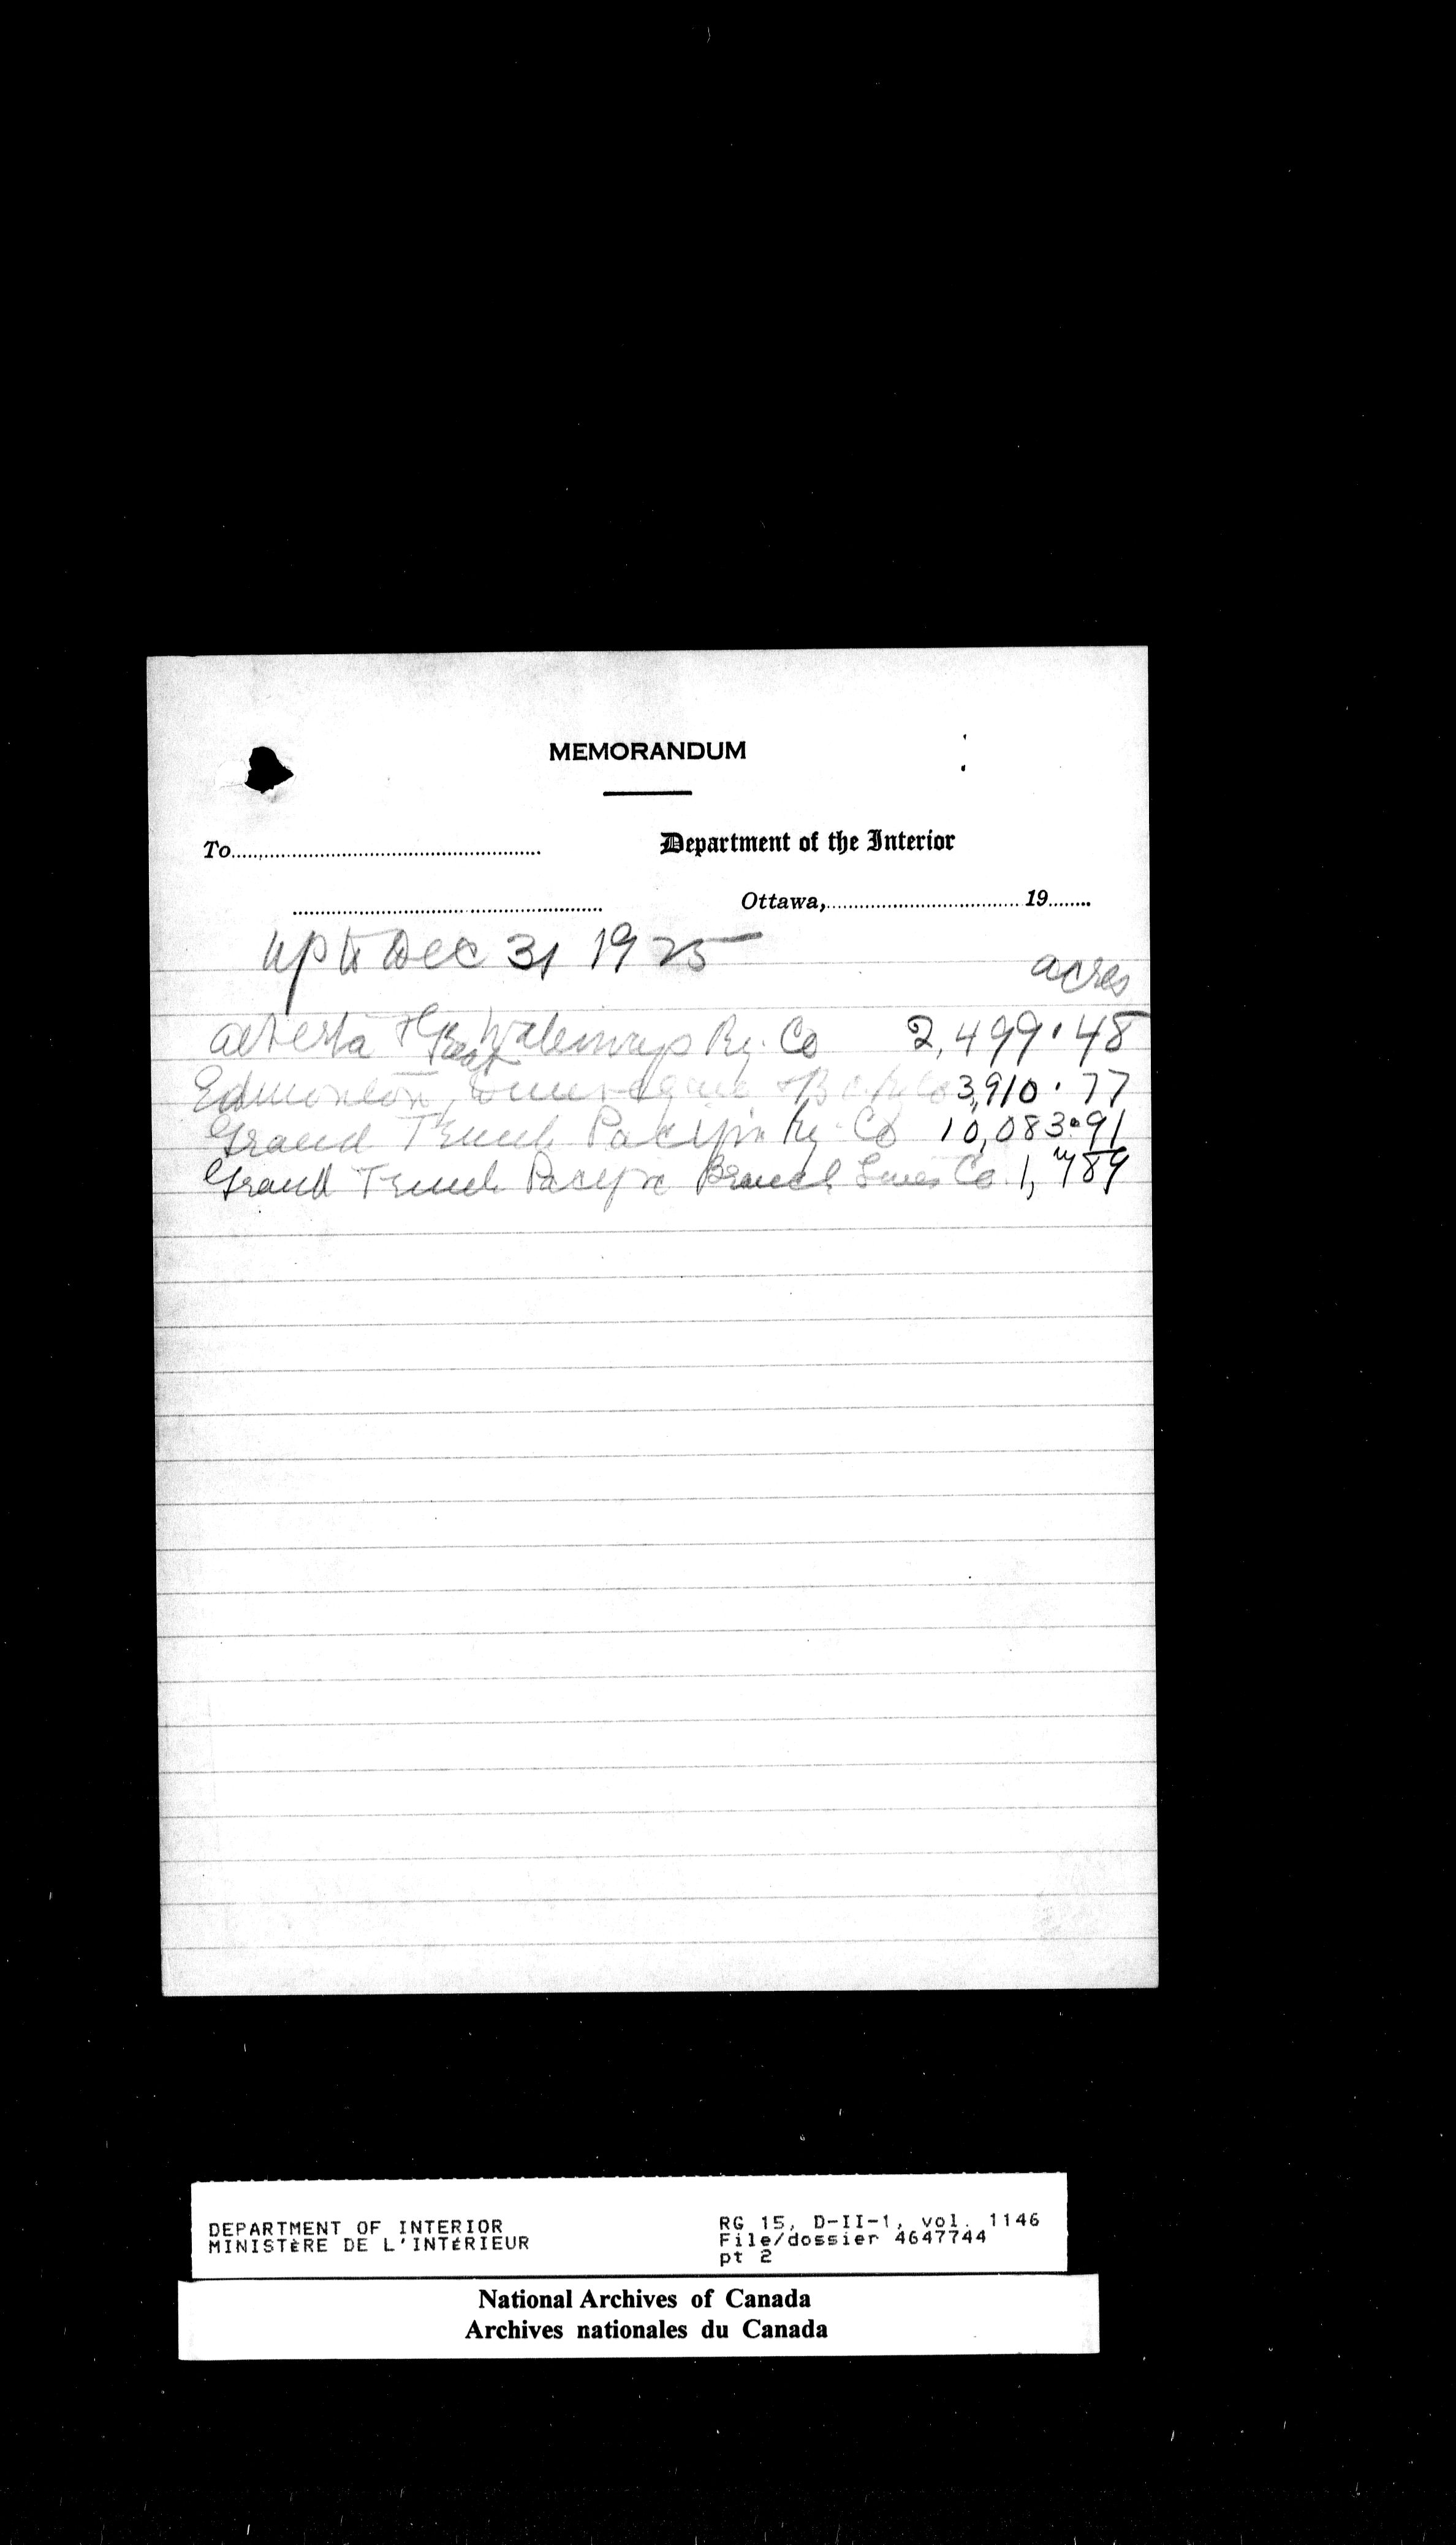 MEMORANDUM
To
Department of the Interior
Ottawa, 19
up to Dec 31 1925
acres
Alberta & Great Waterways Ry. Co 2,499.48
Edmonton, Dunvegan & B.C. Ry Co 3,910.77
Grand Trunk Pacific Ry. Co 10,083.91
Grand Trunk Pacific Branch Lines Co. 1,789
DEPARTMENT OF INTERIOR
MINISTÈRE DE L'INTÉRIEUR
RG 15, D-II-1, vol. 1146
File/dossier 4647744
pt 2
National Archives of Canada
Archives nationales du Canada